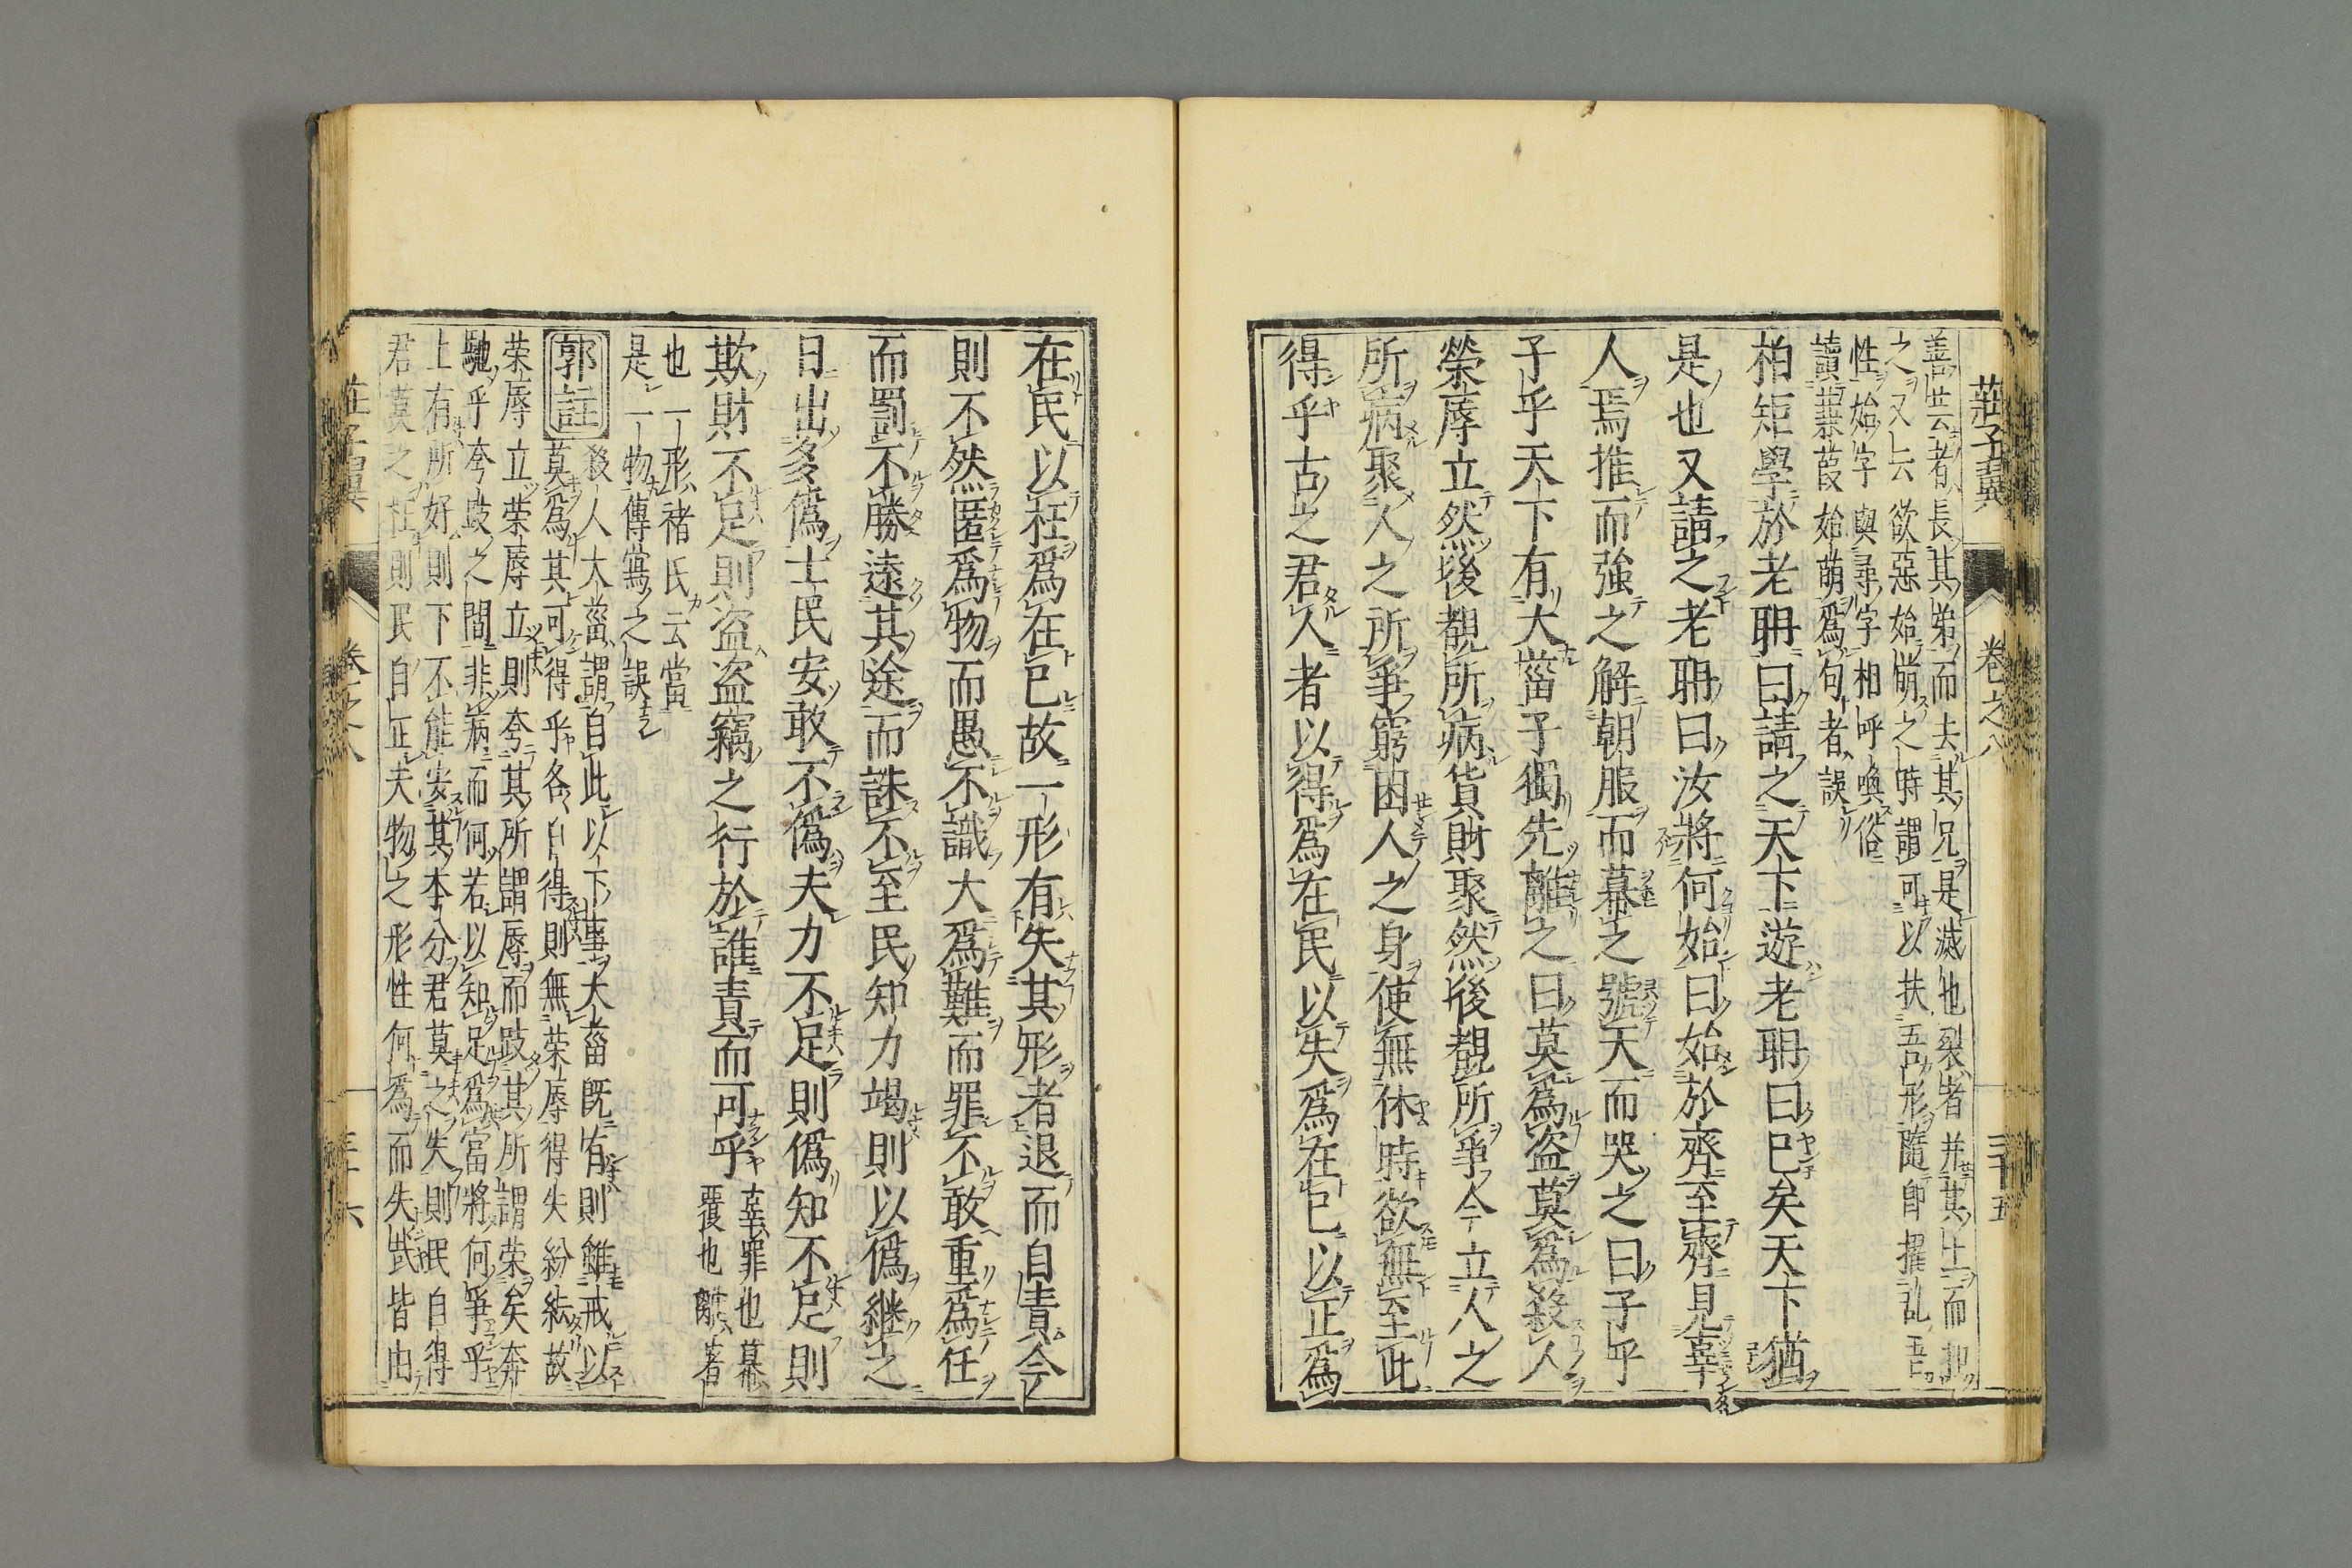 莊子翼 卷之八 三十五
善芸者長其弟而去其兄是滅也裂者并其土而
之又云欲惡始萠之時謂可以扶吾形隨卽擢乱吾
性始字與尋字相呼喚俗
讀蒹葭始萌爲句者誤
柏矩學於老耼曰請之天下遊老耼曰已矣天下猶
是也又請之老耼曰汝將何始曰始於齊至齊見辜
人焉推而強之解朝服而幕之號天而哭之曰子乎
子乎天下有大菑子獨先離之曰莫爲盗莫爲殺人
榮辱立然後覩所病貨財聚然後覩所爭今立人之
所病聚人之所爭窮困人之身使無休時欲無至此
得乎古之君人者以得爲在民以失爲在已以正爲
在民以枉爲在已故一形有失其形者退而自責今
則不然匿爲物而愚不識大爲難而罪不敢重爲任
而罰不勝遠其途而誅不至民知力竭則以僞繼之
日出多僞士民安敢不僞夫力不足則僞知不足則
欺財不足則盗盗竊之行於誰責而可乎 辜罪也幕
覆也離著
也一形褚氏云當
是一物傳寫之誤
郭註 殺人大菑謂自此以下事大菑既有則雖戒以
莫爲其可得乎各自得則無荣辱得失紛紜故
荣辱立荣辱立則夸其所謂辱而跂其所謂荣矣奔
馳乎夸跂之間非病而何若以知足爲富將何爭乎
上有所好則下不能安其本分君莫之失則民自得
君莫之枉則民自正夫物之形性何爲而失哉皆由
莊子翼 卷之八 三十六